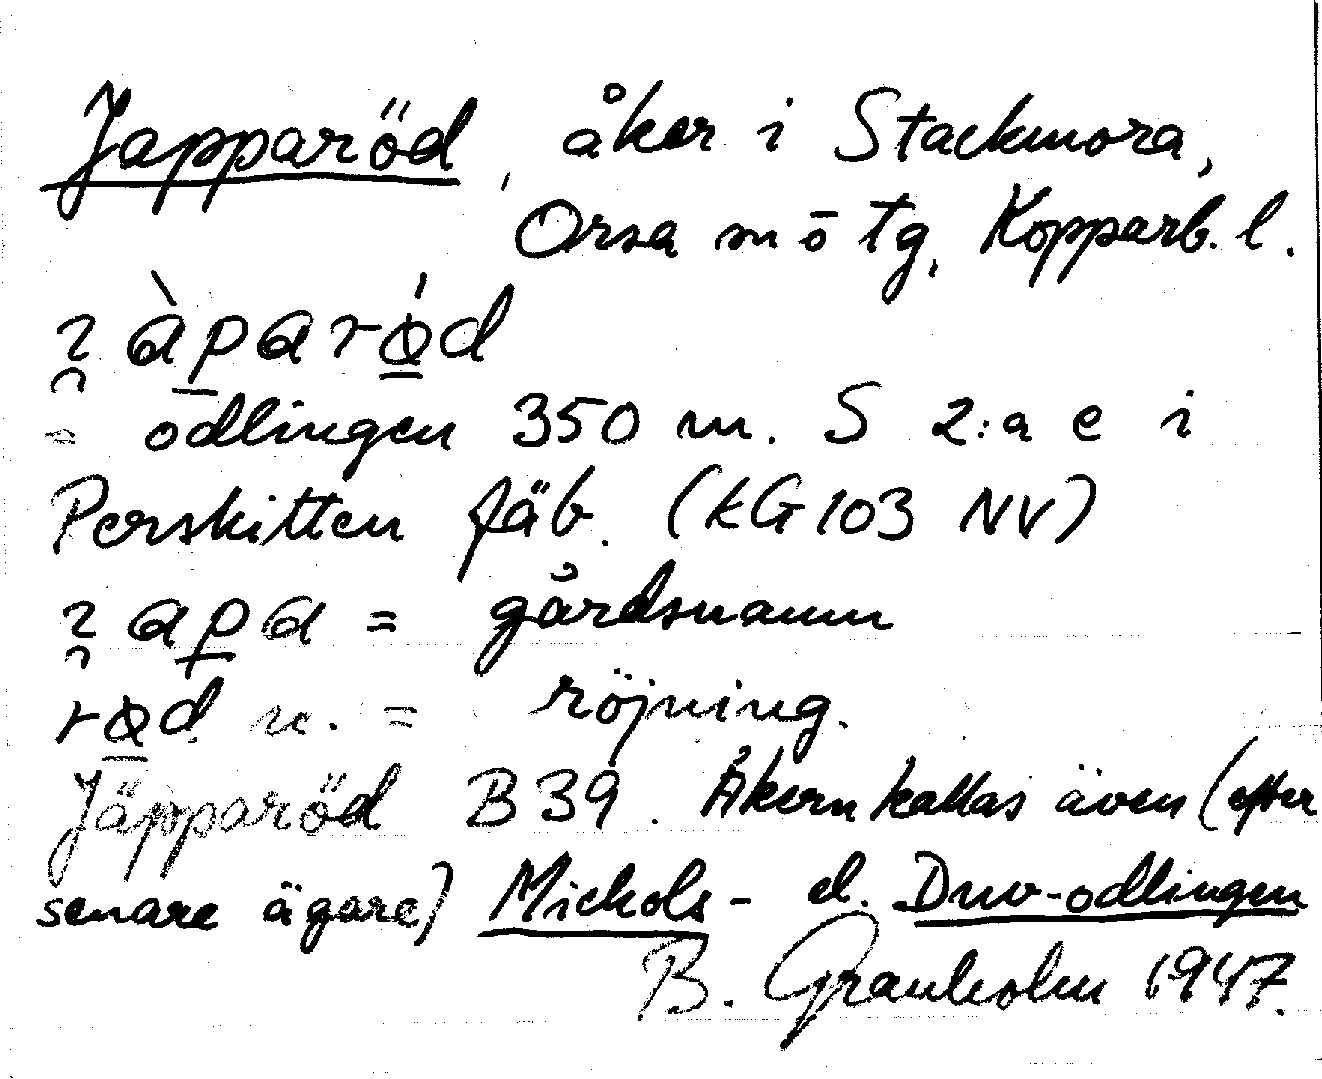 Japparöd, åker i Stackmora,
Orsa sn o tg, Kopparb. l.
= odlingen 350 m. S 2:a e i
Perskitten fäb. (kG103 NV)
= gårdsnamn
röd n. = röjning.
Jäpparöd B39. Åkern kallas även (efter
senare ägare) Mickols- el. Duv-odlingen
B. Granholm 1947.